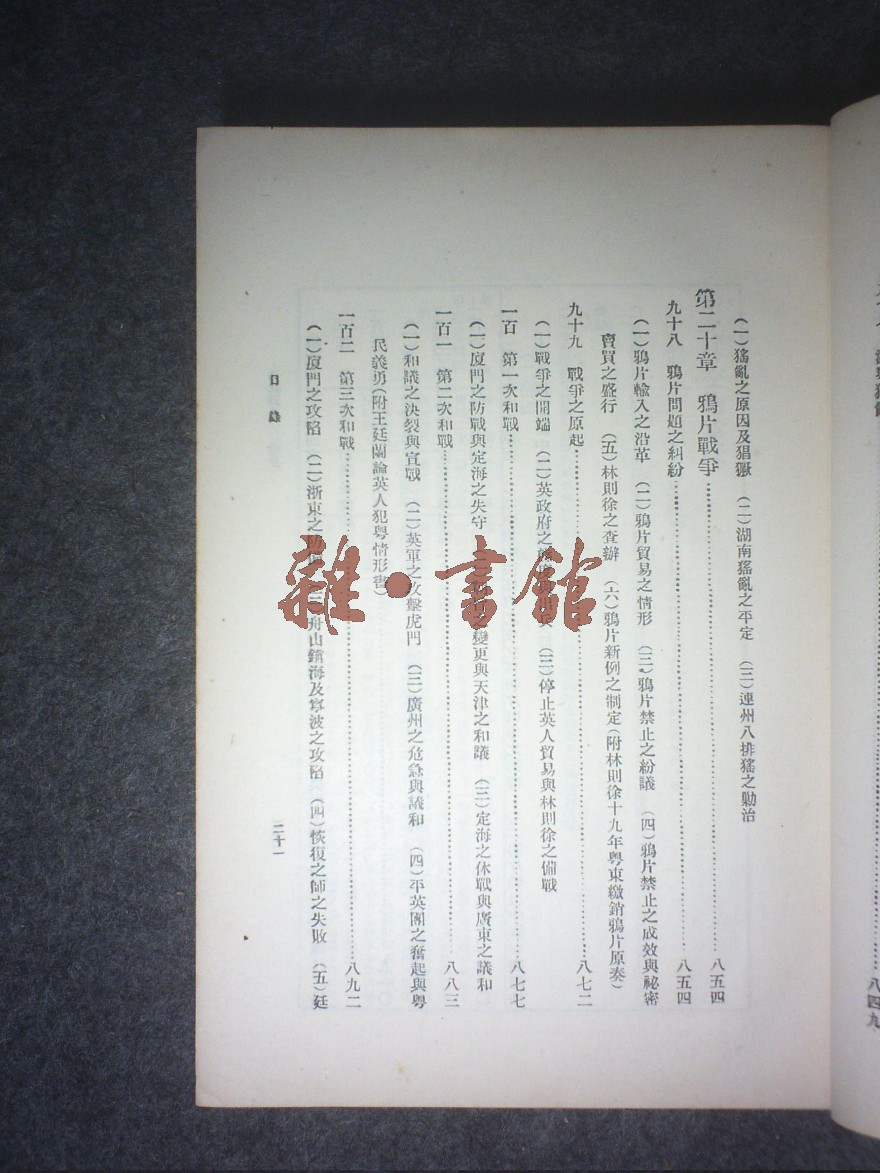 八四九
（一）猺亂之原因及猖獗　（二）湖南猺亂之平定　（三）連州八排猺之勦治
第二十章　鴉片戰爭……八五四
九十八　鴉片問題之糾紛……八五四
（一）鴉片輸入之沿革　（二）鴉片貿易之情形　（三）鴉片禁止之紛議　（四）鴉片禁止之成效與祕密
賣買之盛行　（五）林則徐之查辦　（六）鴉片新例之制定（附林則徐十九年粵東繳銷鴉片原奏）
九十九　戰爭之原起……八七二
（一）戰爭之開端　（二）英政府之　（三）停止英人貿易與林則徐之備戰
一百　第一次和戰……八七七
（一）廈門之防戰與定海之失守　之變更與天津之和議　（三）定海之休戰與廣東之議和
一百一　第二次和戰……八八三
（一）和議之決裂與宣戰　（二）英軍之攻擊虎門　（三）廣州之危急與議和　（四）平英團之奮起與粵
民義勇（附王廷蘭論英人犯粵情形書）
一百二　第三次和戰……八九二
（一）廈門之攻陷　（二）浙東之防　舟山鎮海及寧波之攻陷　（四）恢復之師之失敗　（五）廷
目錄
二十一
雜·書館